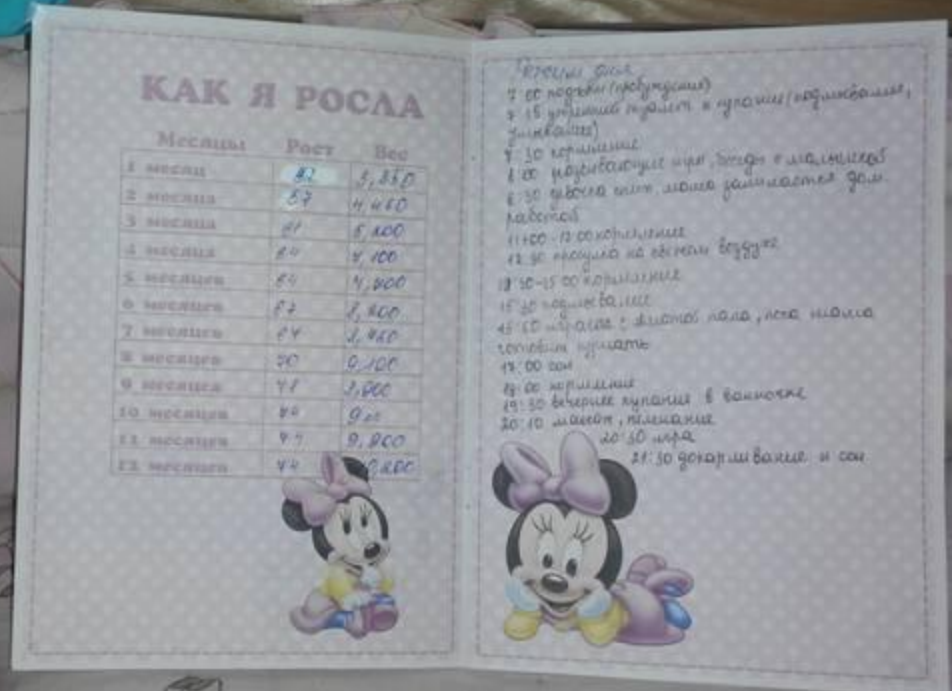 КАК Я РОСЛА
Месяцы Рост Вес
1 месяц 3,350
2 месяца 57 4,450
3 месяца 61
4 месяца 64 7,100
5 месяцев 64
6 месяцев 67
7 месяцев
8 месяцев 70 9,100
9 месяцев
10 месяцев
11 месяцев 9,900
12 месяцев 74
Режим дня
7 00 подъём (пробуждение)
7 15 утренний туалет и купание (подмывание,
умывание)
7 30 кормление
8 00 развивающие игры, беседы с малышкой
девочка спит, мама занимается дом.
работой
11 00 - 12 00 кормление
12 30 прогулка на свежем воздухе
кормление
15 30 подмывание
играет с папа, пока мама
готовит кушать
17:00 сон
кормление
19:30 вечернее купание в ванночке
20:10 массаж, пеленание
20:30 игра
21:30 докармливание и сон